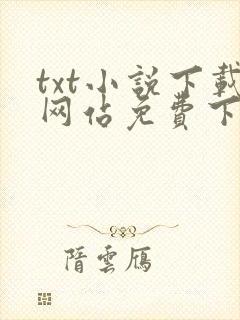 txt小説下載
网佔免費下
隋雲鴈